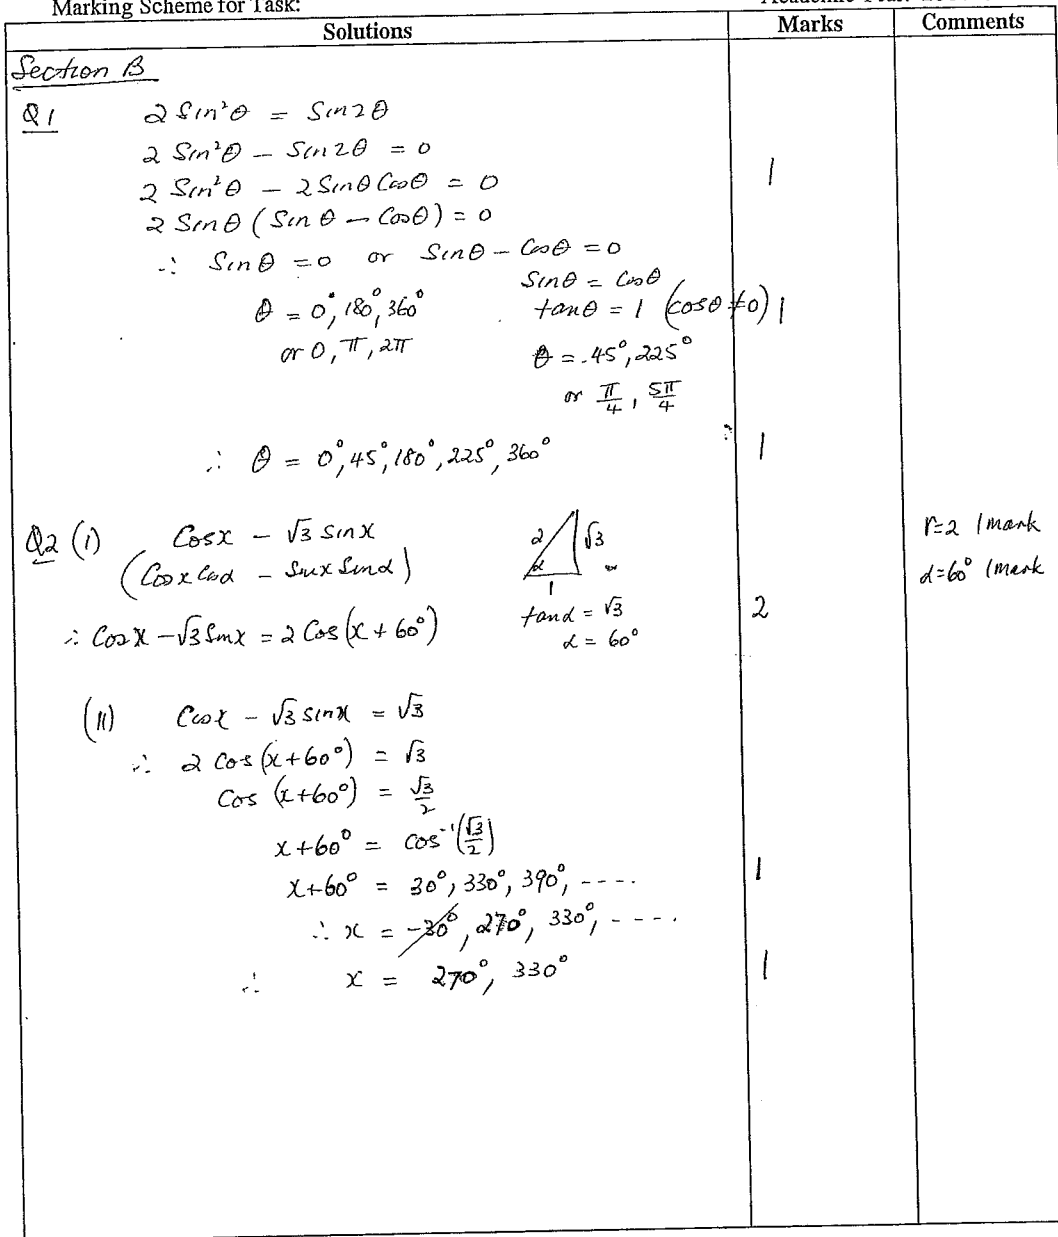 Marking Scheme for Task:
Solutions Marks Comments
Section B
Q1 2 Sin²θ = Sin2θ
2 Sin²θ − Sin2θ = 0
2 Sin²θ − 2SinθCosθ = 0 1
2 Sinθ (Sinθ − Cosθ) = 0
∴ Sinθ = 0 or Sinθ − Cosθ = 0
Sinθ = Cosθ
θ = 0°, 180°, 360° tanθ = 1 (cosθ ≠ 0) 1
or 0, π, 2π θ = 45°, 225°
or π/4, 5π/4
∴ θ = 0°, 45°, 180°, 225°, 360° 1
Q2 (i) Cosx − √3 sinx 2 √3 r=2 1mark
(Cosx Cosα − Sinx Sinα) α 1 α=60° 1mark
∴ Cosx − √3 Sinx = 2 Cos(x + 60°) tanα = √3 2
α = 60°
(ii) Cosx − √3 sinx = √3
∴ 2 Cos(x+60°) = √3
Cos (x+60°) = √3/2
x+60° = cos⁻¹(√3/2)
x+60° = 30°, 330°, 390°, ---- 1
∴ x = -30°, 270°, 330°, ----
∴ x = 270°, 330° 1